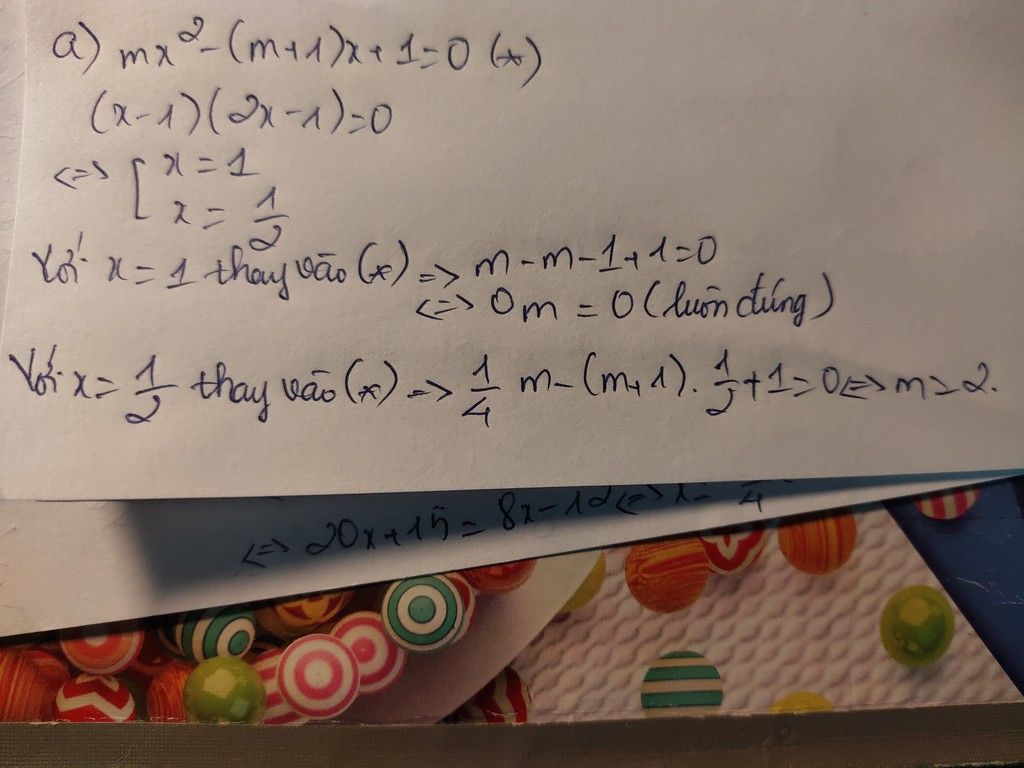 a) mx² - (m+1)x + 1 = 0 (*)
(x-1)(2x-1)=0
<=> [ x = 1
x = 1/2
Với x = 1 thay vào (*) => m - m - 1 + 1 = 0
<=> 0m = 0 (luôn đúng)
Với x = 1/2 thay vào (*) => 1/4 m - (m+1). 1/2 + 1 = 0 <=> m = 2.
<=> 20x + 15 = 8x - 12 <=> x =